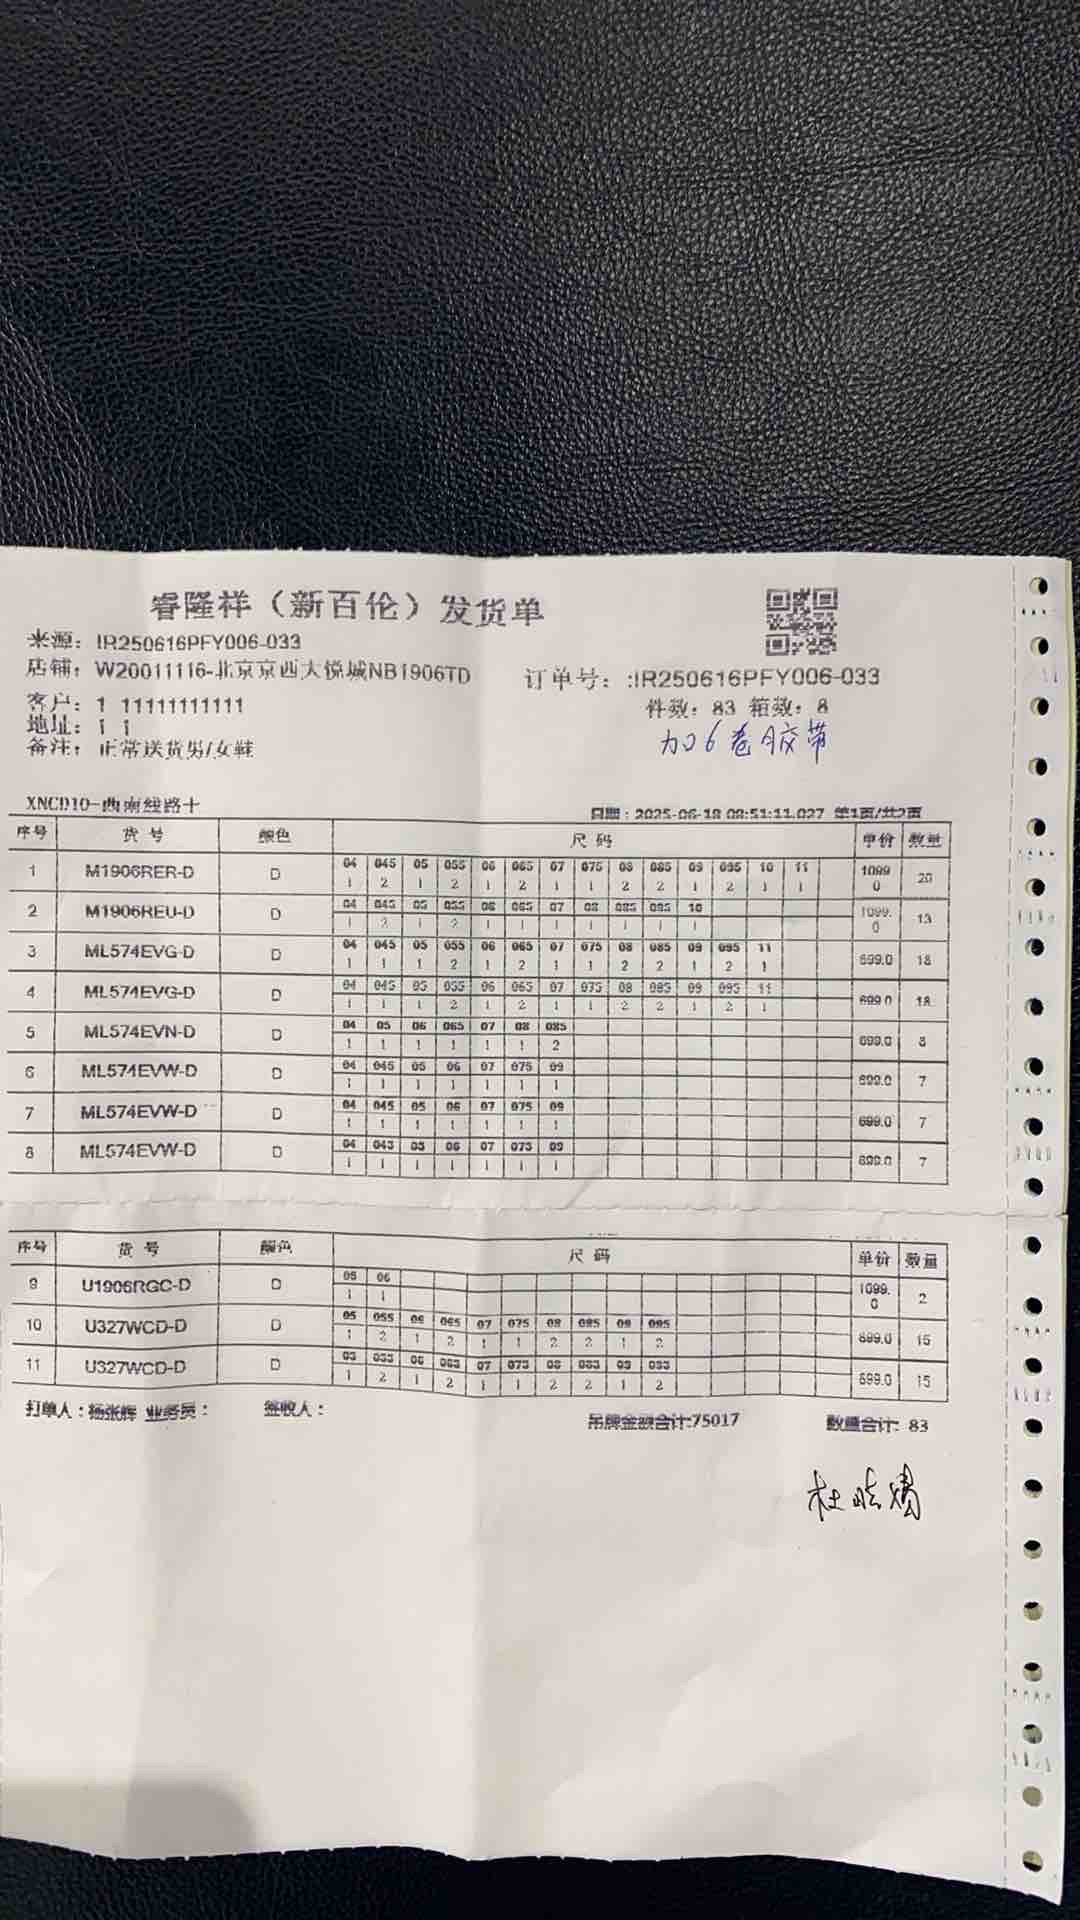 睿隆祥（新百伦）发货单
来源：IR250616PFY006-033
店铺：W20011116-北京京西大悦城NB1906TD 订单号：:IR250616PFY006-033
客户：1 11111111111 件数：83 箱数：8
地址：1 1
加6卷胶带
备注：正常送货男/女鞋
XNCD10-西南线路十
日期：2025-06-18 08:51:11.027 第1页/共2页
序号 货号 颜色 尺码 单价 数量
04 045 05 055 06 065 07 075 08 085 09 095 10 11
1 M1906RER-D D 1 2 1 2 1 2 1 1 2 2 1 2 1 1 1099.0 20
04 045 05 055 06 065 07 08 085 095 10
2 M1906REU-D D 1 2 1 2 1 1 1 1 1 1 1 1099.0 13
04 045 05 055 06 065 07 075 08 085 09 095 11
3 ML574EVG-D D 1 1 1 2 1 2 1 1 2 2 1 2 1 699.0 18
04 045 05 055 06 065 07 075 08 085 09 095 11
4 ML574EVG-D D 1 1 1 2 1 2 1 1 2 2 1 2 1 699.0 18
04 05 06 065 07 08 085
5 ML574EVN-D D 1 1 1 1 1 1 2 699.0 8
04 045 05 06 07 075 09
6 ML574EVW-D D 1 1 1 1 1 1 1 699.0 7
04 045 05 06 07 075 09
7 ML574EVW-D D 1 1 1 1 1 1 1 699.0 7
04 045 05 06 07 075 09
8 ML574EVW-D D 1 1 1 1 1 1 1 699.0 7
序号 货号 颜色 尺码 单价 数量
05 06
9 U1906RGC-D D 1 1 1099.0 2
05 055 06 065 07 075 08 085 09 095
10 U327WCD-D D 1 2 1 2 1 1 2 2 1 2 899.0 15
05 055 06 065 07 075 08 085 09 095
11 U327WCD-D D 1 2 1 2 1 1 2 2 1 2 899.0 15
打单人：杨张辉 业务员： 签收人： 吊牌金额合计:75017 数量合计: 83